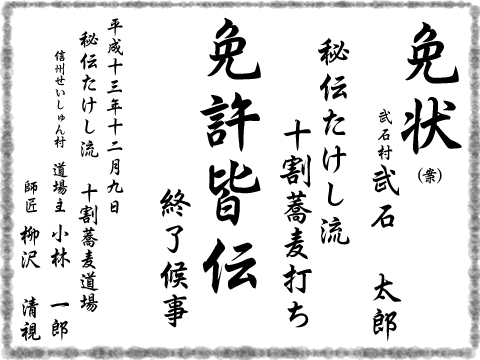 免状
(案)
武石村 武石 太郎
秘伝たけし流
十割蕎麦打ち
免許皆伝
終了候事
平成十三年十二月九日
秘伝たけし流 十割蕎麦道場
信州せいしゅん村 道場主 小林 一郎
師匠 柳沢 清視